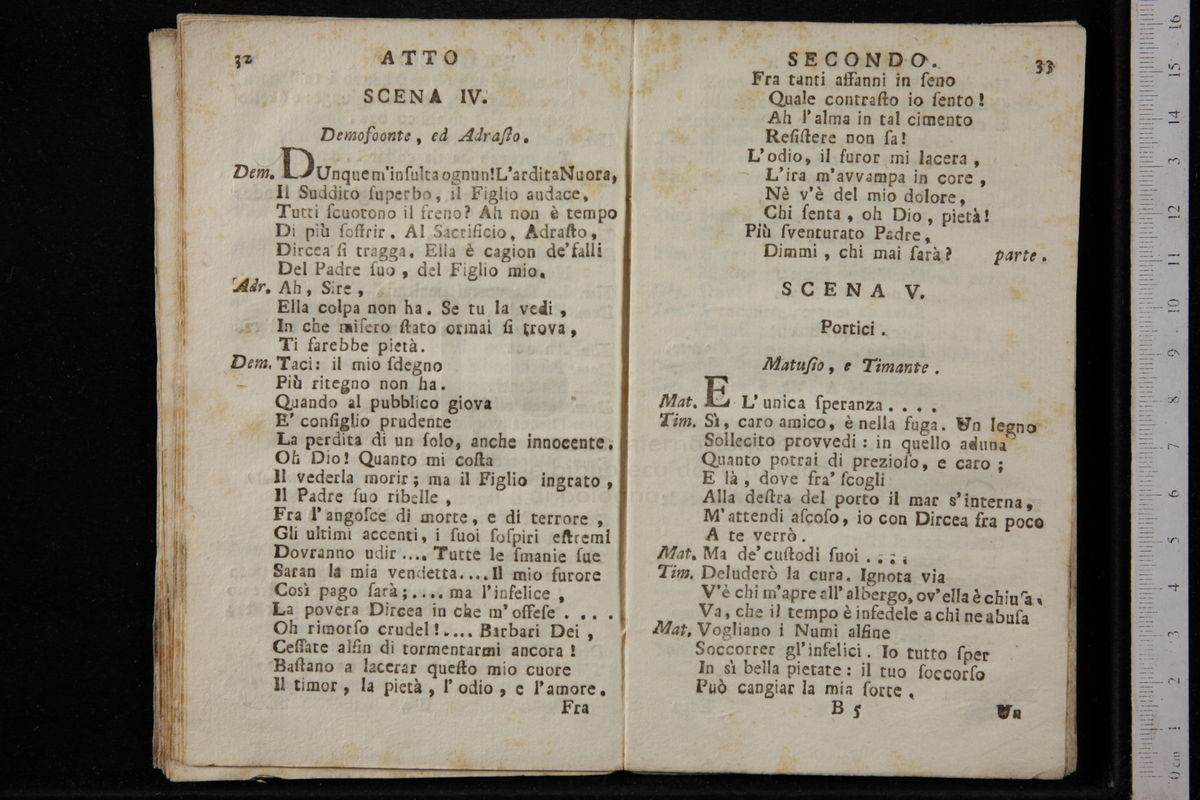 32 ATTO
SCENA IV.
Demofoonte, ed Adraſto.
Dem. DUnque m'inſulta ognun! L'ardita Nuora,
Il Suddito ſuperbo, il Figlio audace,
Tutti ſcuotono il freno? Ah non è tempo
Di più ſoffrir. Al Sacrificio, Adraſto,
Dircea ſi tragga. Ella è cagion de' falli
Del Padre ſuo, del Figlio mio.
Adr. Ah, Sire,
Ella colpa non ha. Se tu la vedi,
In che miſero ſtato ormai ſi trova,
Ti farebbe pietà.
Dem. Taci: il mio ſdegno
Più ritegno non ha.
Quando al pubblico giova
E' conſiglio prudente
La perdita di un ſolo, anche innocente.
Oh Dio! Quanto mi coſta
Il vederla morir; ma il Figlio ingrato,
Il Padre ſuo ribelle,
Fra l'angoſce di morte, e di terrore,
Gli ultimi accenti, i ſuoi ſoſpiri eſtremi
Dovranno udir .... Tutte le ſmanie ſue
Saran la mia vendetta.... Il mio furore
Così pago ſarà;.... ma l'infelice,
La povera Dircea in che m'offeſe ....
Oh rimorſo crudel!.... Barbari Dei,
Ceſſate alfin di tormentarmi ancora!
Baſtano a lacerar queſto mio cuore
Il timor, la pietà, l'odio, e l'amore.
Fra
SECONDO. 33
Fra tanti affanni in ſeno
Quale contraſto io ſento!
Ah l'alma in tal cimento
Reſiſtere non ſa!
L'odio, il furor mi lacera,
L'ira m'avvampa in core,
Nè v'è del mio dolore,
Chi ſenta, oh Dio, pietà!
Più ſventurato Padre,
Dimmi, chi mai ſarà? parte.
SCENA V.
Portici.
Matuſio, e Timante.
Mat. E L'unica ſperanza ....
Tim. Sì, caro amico, è nella fuga. Un legno
Sollecito provvedi: in quello aduna
Quanto potrai di prezioſo, e caro;
E là, dove fra' ſcogli
Alla deſtra del porto il mar s'interna,
M'attendi aſcoſo, io con Dircea fra poco
A te verrò.
Mat. Ma de' cuſtodi ſuoi ....
Tim. Deluderò la cura. Ignota via
V'è chi m'apre all'albergo, ov'ella è chiuſa.
Va, che il tempo è infedele a chi ne abuſa
Mat. Vogliano i Numi alfine
Soccorrer gl'infelici. Io tutto ſper
In sì bella pietate: il tuo ſoccorſo
Può cangiar la mia ſorte.
B 5 Un